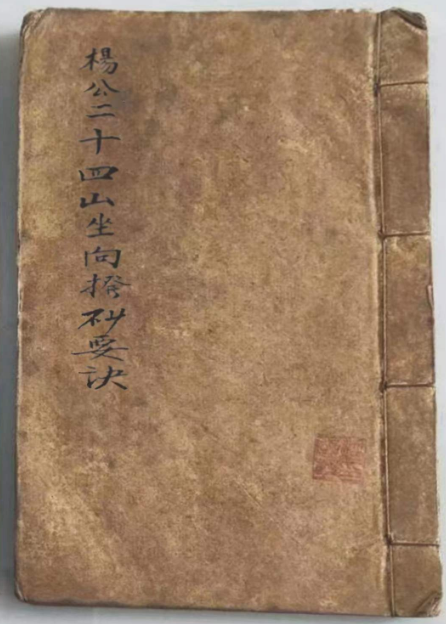 楊公二十四山坐向撥砂要诀